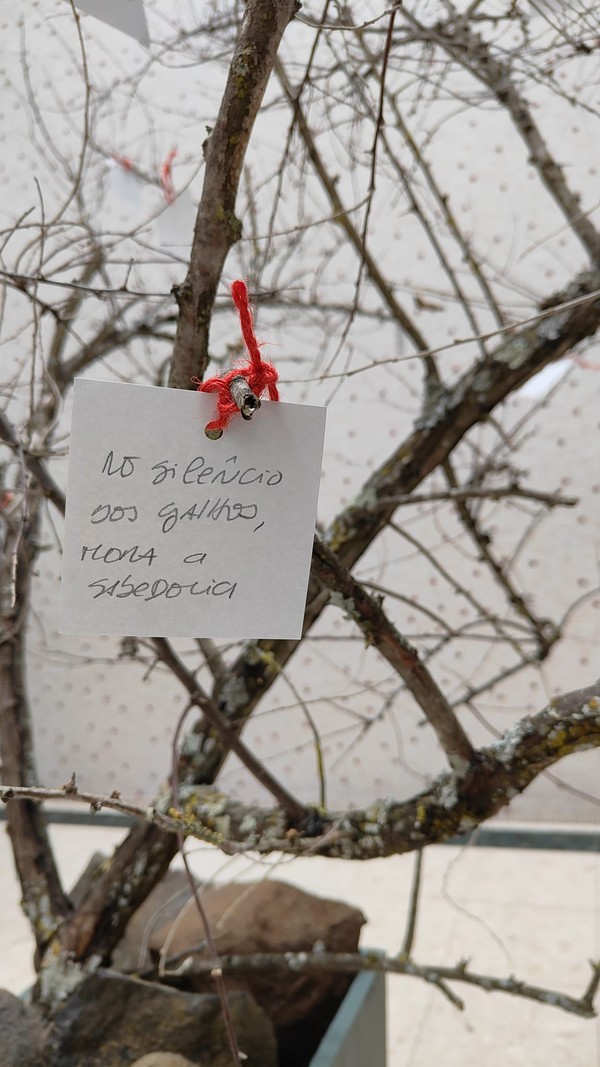 No silêncio
dos galhos,
mora a
sabedoria